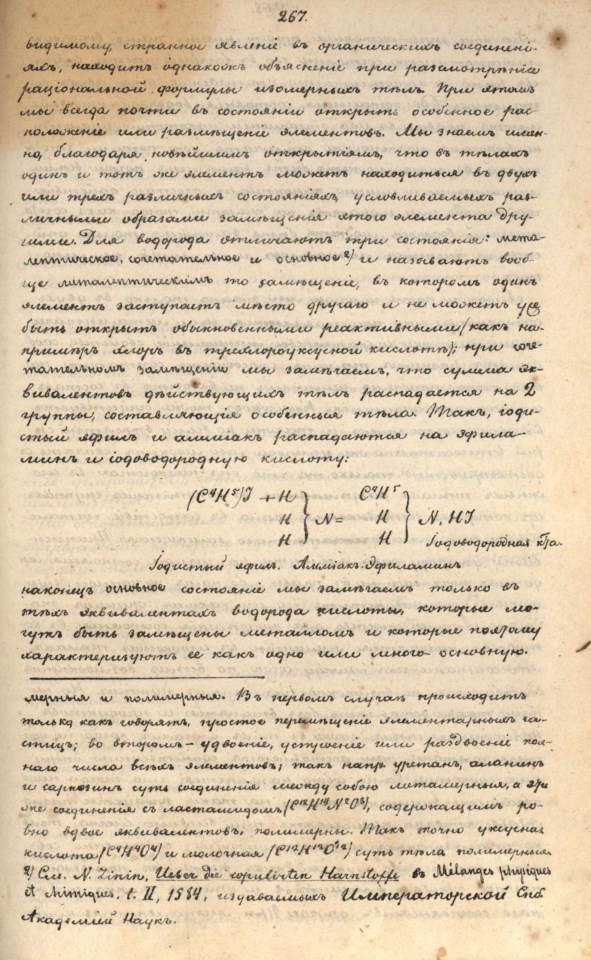 267.
видимому, странное явленіе въ органическихъ соединені-
яхъ, находитъ однакожъ объясненіе при разсмотрѣніе
раціональной формулы изомерныхъ тѣлъ. При этомъ
мы всегда почти въ состояніи открыть особенное рас-
положеніе или размѣщеніе элементовъ. Мы знаемъ имен-
но, благодаря новѣйшимъ открытіямъ, что въ тѣлахъ
одинъ и тотъ же элементъ можетъ находиться въ двухъ
или трехъ различныхъ состояніяхъ, условливаемыхъ раз-
личными образами замѣщенія этого элемента дру-
гими. Для водорода отличаютъ три состоянія: мета-
лептическое, сочетательное и основное 2) и называютъ вооб-
ще металептическимъ то замѣщеніе, въ которомъ одинъ
элементъ заступаетъ мѣсто другаго и не можетъ уже
быть открытъ обыкновенными реактивными (какъ на-
примѣръ хлоръ въ трехлороуксусной кислотѣ); при соче-
тательномъ замѣщеніи мы замѣчаемъ, что сумма эк-
вивалентовъ дѣйствующихъ тѣлъ распадается на 2
группы, составляющія особенныя тѣла. Такъ, іоди-
стый эфилъ и амміакъ распадаются на эфила-
минъ и іодоводородную кислоту:
(C⁴H⁵)J + H C⁴H⁵
H } N = H } N, HJ
H H Іодоводородная к-та.
Іодистый эфилъ. Амміакъ. Эфиламинъ
наконецъ основное состояніе мы замѣчаемъ только въ
тѣхъ эквивалентахъ водорода кислоты, которые мо-
гутъ быть замѣщены металломъ и которые поэтому
характеризуютъ ее какъ одно или много-основную.
мерныя и полимерныя. Въ первомъ случаѣ происходитъ
только какъ говорятъ, простое перемѣщеніе элементарныхъ ча-
стицъ; во второмъ – удвоеніе, устроеніе или раздвоеніе пол-
наго числа всѣхъ элементовъ; такъ напр. уретанъ, аланинъ
и саркозинъ суть соединенія между собою метамерныя, а эти
же соединенія съ ластамидомъ (C¹²H¹⁴N²O⁸), содержащимъ ро-
вно вдвое эквивалентовъ, полимерны. Такъ точно уксусная
кислота (C⁴H⁴O⁴) и молочная (C¹²H¹²O¹²) суть тѣла полимерныя.
2) См. N. Zinin, Ueber die copulirten Harnstoffe въ Mélanges physiques
et chimiques. t. II, 1854, издаваемыхъ Императорской Спб.
Академіей Наукъ.